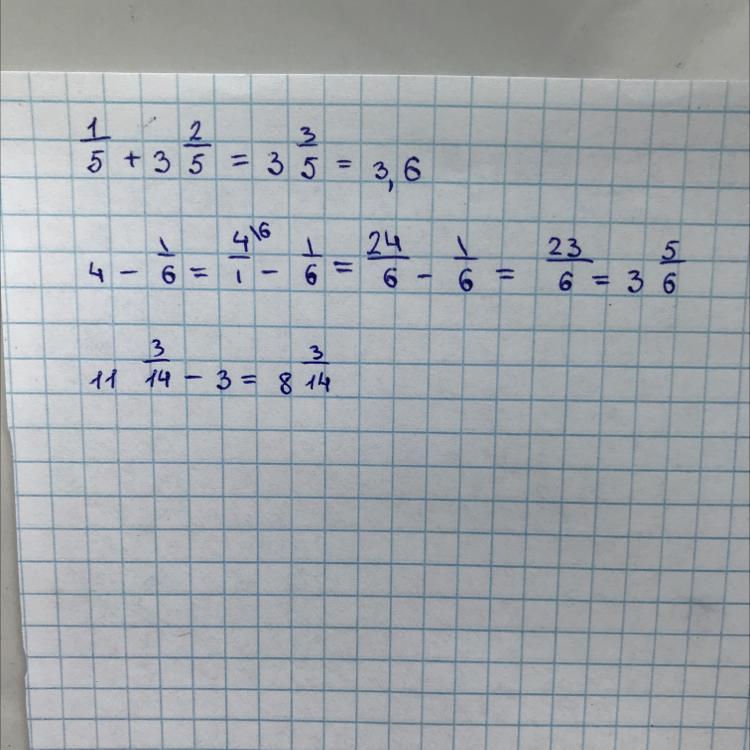 1/5 + 3 2/5 = 3 3/5 = 3,6
4 - 1/6 = 4\6/1 - 1/6 = 24/6 - 1/6 = 23/6 = 3 5/6
11 3/14 - 3 = 8 3/14